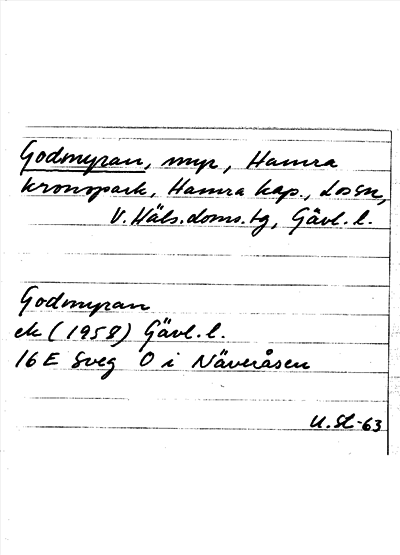 Godmyran, myr, Hamra
kronopark, Hamra kap., Los sn,
V. Häls. doms. tg, Gävl. l.
Godmyran
ek (1958) Gävl. l.
16 E Sveg O i Näveråsen
U. SL -63